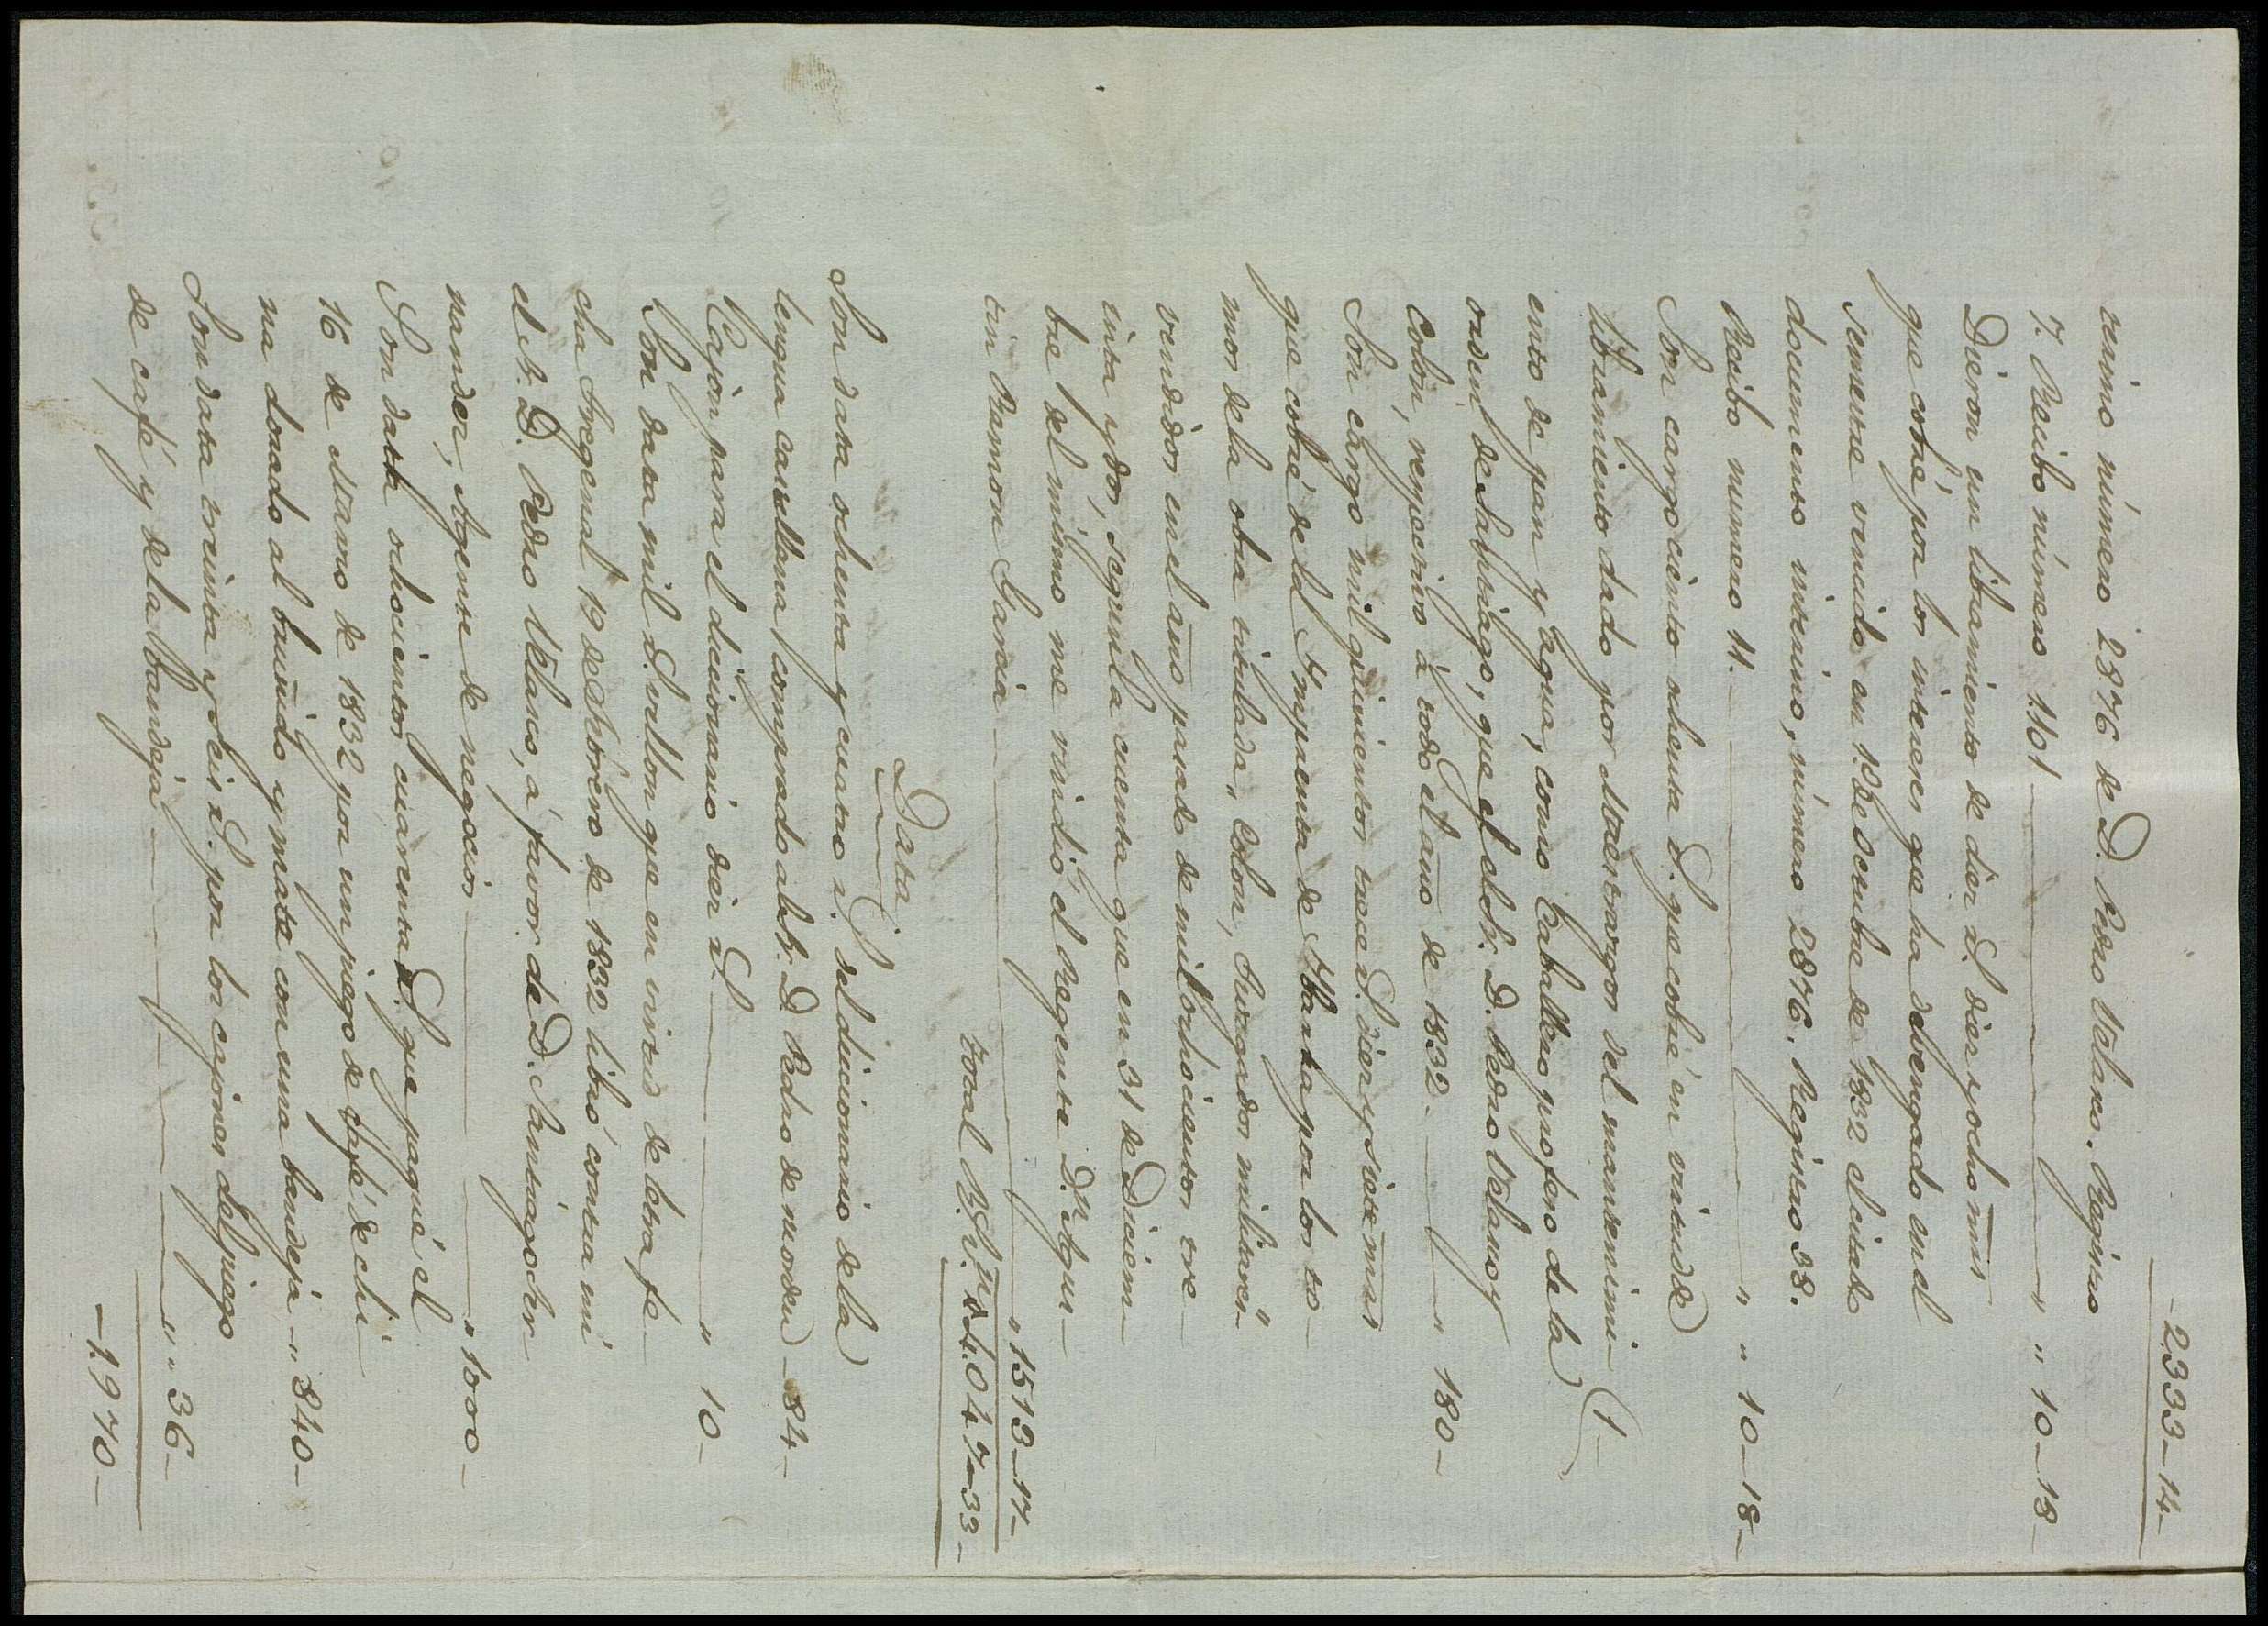 -2333-14-
terino número 2876 de D. Pedro Velasco. Registro
7. Recibo número 1.101 " " 10-18-
Dieron un libramiento de diez rs. diez y ocho mrs
que cobré por los intereses que ha devengado en el
semestre vencido en 1º de Octubre de 1832 el citado
documento interino, número 2876. Registro 38.
Recibo numero 11. " " 10-18-
Son cargo ciento ochenta rs. que cobré en virtud de
libramiento dado por Maestrazgos del mantenimi-
ento de pan y agua, como Caballero profeso de la
orden de Santiago, que el el Sr. D. Pedro Velasco y
Colon, respectivo á todo el año de 1832. " 180-
Son cargo mil quinientos trece rs. diez y siete mrs
que cobré de la Imprenta de Ybarra por los to-
mos de la obra titulada, "Colon, Juzgados militares"
vendidos en el año pasado de mil ochocientos tre-
inta y dos, segun la cuenta que en 31 de Diciem-
bre del mismo me rindió el Regente D.n Agus-
tin Ramon Garcia " 1513-17-
total Rs. vn 4.047-33-
Data
Son data ochenta y cuatro rs. del diccionario de la
lengua castellana comprado al Sr. D. Pedro de mi orden -84-
Cajon para el diccionario diez rs. " 10-
Son data mil rs. vellon que en virtud de letra fe-
cha Fregenal 19 de Febrero de 1832 libró contra mi
el Sr. D. Pedro Velasco, á favor de D. Santiago Her
nandez, Agente de negocios " 1000-
Son data ochocientos cuarenta rs. que pagué el
16 de Marzo de 1832 por un juego de café de chi-
na dorado al bruñido y mate con una bandeja " 840-
Son data treinta y seis rs. por los cajones del juego
de café y de la bandeja " " 36-
-1.970-